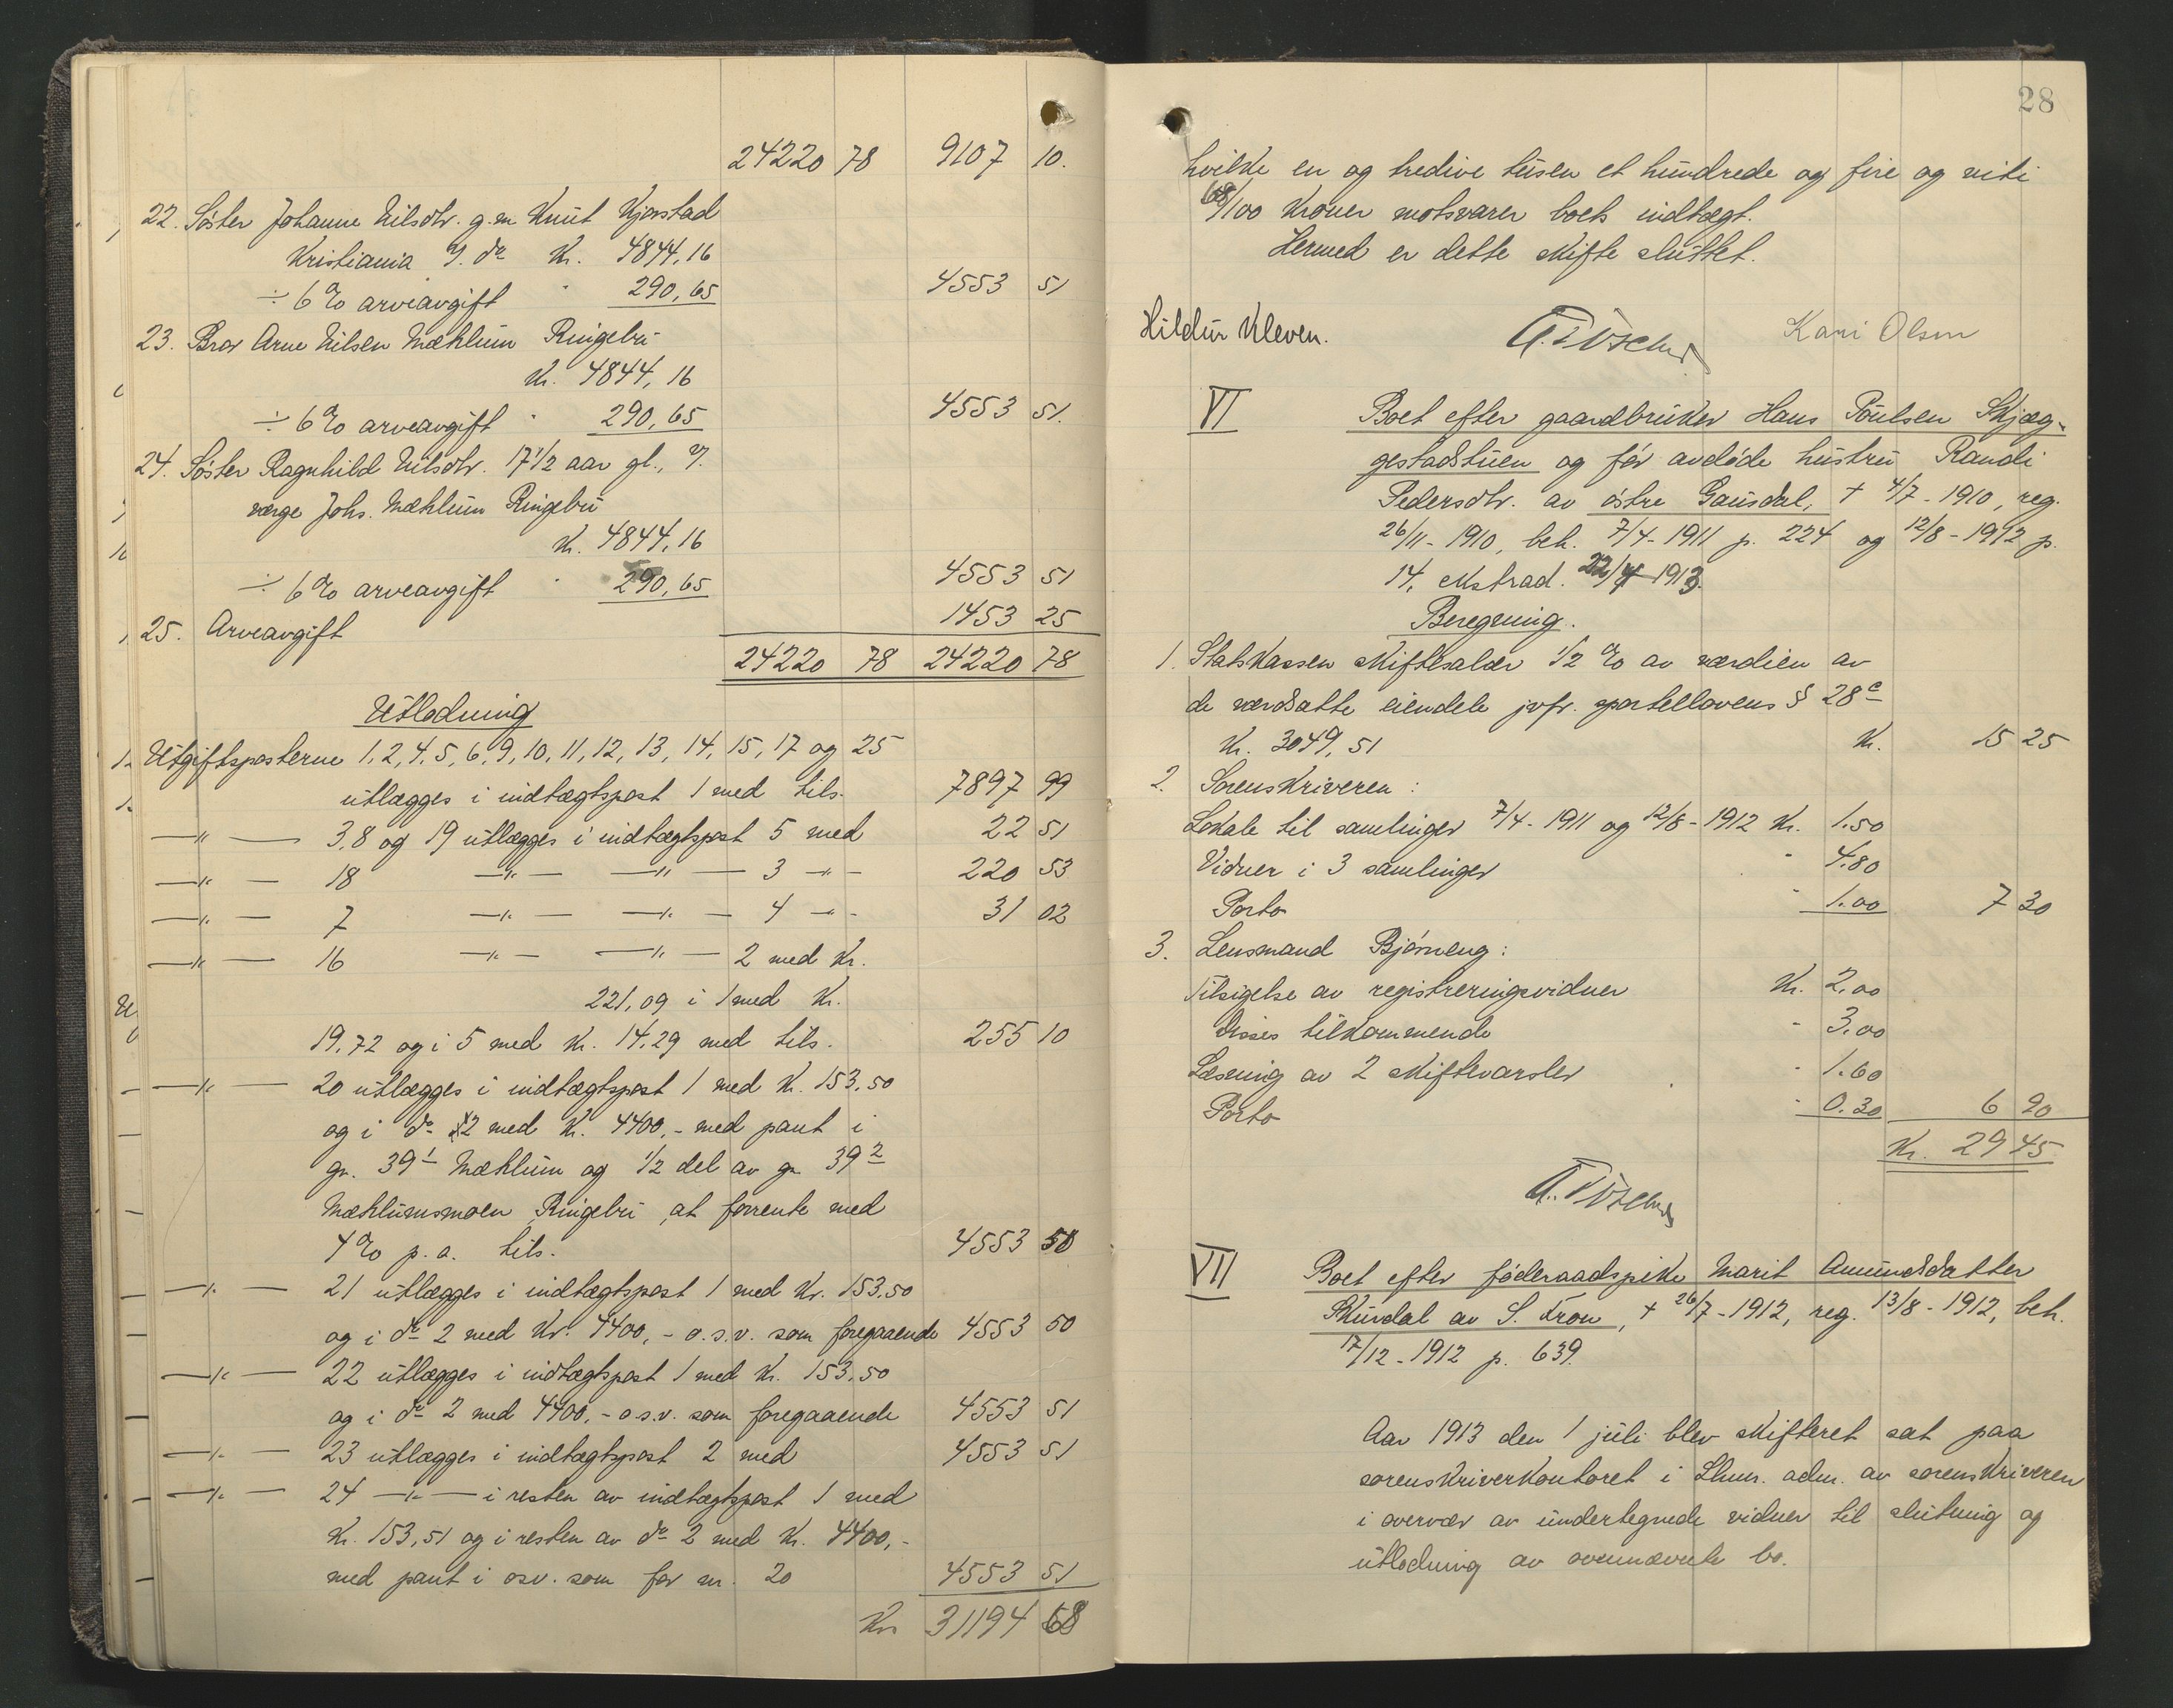 24220 78 9107 10.
22. Søster Johanne Nilsdtr. g.m. Knut Kjorstad
Kristiania y. do Kr. 4844,16
÷ 6 % arveavgift " 290,65 4553 51
23. Bror Arne Nilsen Mæhlum Ringebu
Kr. 4844,16
÷ 6 % arveavgift " 290,65 4553 51.
24. Søster Ragnhild Nilsdtr. 17 1/2 aar gl., y.
værge Johs. Mæhlum Ringebu
Kr. 4844,16
÷ 6 % arveavgift " 290,65 4553 51
25. Arveavgift 1453 25
24220 78 24220 78
Utlodning
1. Utgiftsposterne 1, 2, 4, 5, 6, 9, 10, 11, 12, 13, 14, 15, 17 og 25
utlægges i indtægtspost 1 med tils. 7897 99
—"— 3, 8 og 19 utlægges i indtægtspost 5 med 22 51
—"— 18 —"— —"— 3 —"— 220 53
—"— 7 —"— —"— 4 —"— 31 02
—"— 16 —"— —"— 2 med Kr.
221,09 i 1 med Kr.
19,72 og i 5 med Kr. 14,29 med tils. 255 10
—"— 20 utlægges i indtægtspost 1 med Kr. 153,50
og i do 2 med Kr. 4400,- med pant i
gr. 39 1 Mæhlum og 1/2 del av gr 39 2
Mæhlumsmoen Ringebu, at forrente med
4 % p.a. tils. 4553 50
—"— 21 utlægges i indtægtspost 1 med Kr. 153,50
og i do 2 med Kr. 4400,- o.s.v. som foregaaende 4553 50
—"— 22 utlægges i indtægtspost 1 med Kr. 153,50
og i do 2 med 4400,- o.s.v. som foregaaende 4553 51
—"— 23 utlægges i indtægtspost 2 med 4553 51
—"— 24 —"— i resten av indtægtspost 1 med
Kr. 153,51 og i resten av do 2 med Kr. 4400,-
med pant i osv. som for nr. 20 4553 51
Kr 31194 68
28
hvilke en og tredive tusen et hundrede og fire og niti
68/100 Kroner motsvarer boets indtægt.
Hermed er dette skifte sluttet.
Hildur Kleven. Kari Olsen
VI Boet efter gaardbruker Hans Poulsen Skjæg-
gestadstuen og før avdøde hustru Randi
Pedersdtr. av østre Gausdal, + 4/7 - 1910, reg.
26/11 - 1910, beh. 7/4 - 1911 p. 224 og 12/8 - 1912 p.
14, ekstrad. 22/4 1913.
Beregning.
1. Statskassen skiftesalær 1/2 % av værdien av
de værdsatte eiendele jvfr. sportellovens § 28 c
Kr. 3049,51 Kr. 15 25
2. Sorenskriveren:
Lokale til samlinger 7/4 - 1911 og 12/8 - 1912 Kr. 1.50
Vidner i 3 samlinger " 4.80
Porto " 1.00 7 30
3. Lensmand Bjørneng:
Tilsigelse av registreringsvidner Kr. 2,00
disses tilkommende " 3,00
Læsning av 2 skiftevarsler " 1.60
Porto " 0.30 6 90
Kr. 29 45
VII Boet efter føderaadspike Marit Amundsdatter
Skurdal av S. Fron, + 26/7 - 1912, reg. 13/8 - 1912, beh.
17/12 - 1912 p. 639.
Aar 1913 den 1 juli blev skifteret sat paa
sorenskriverkontoret i Lhmr. adm. av sorenskriveren
i overvær av undertegnede vidner til slutning og
utlodning av ovennævnte bo.